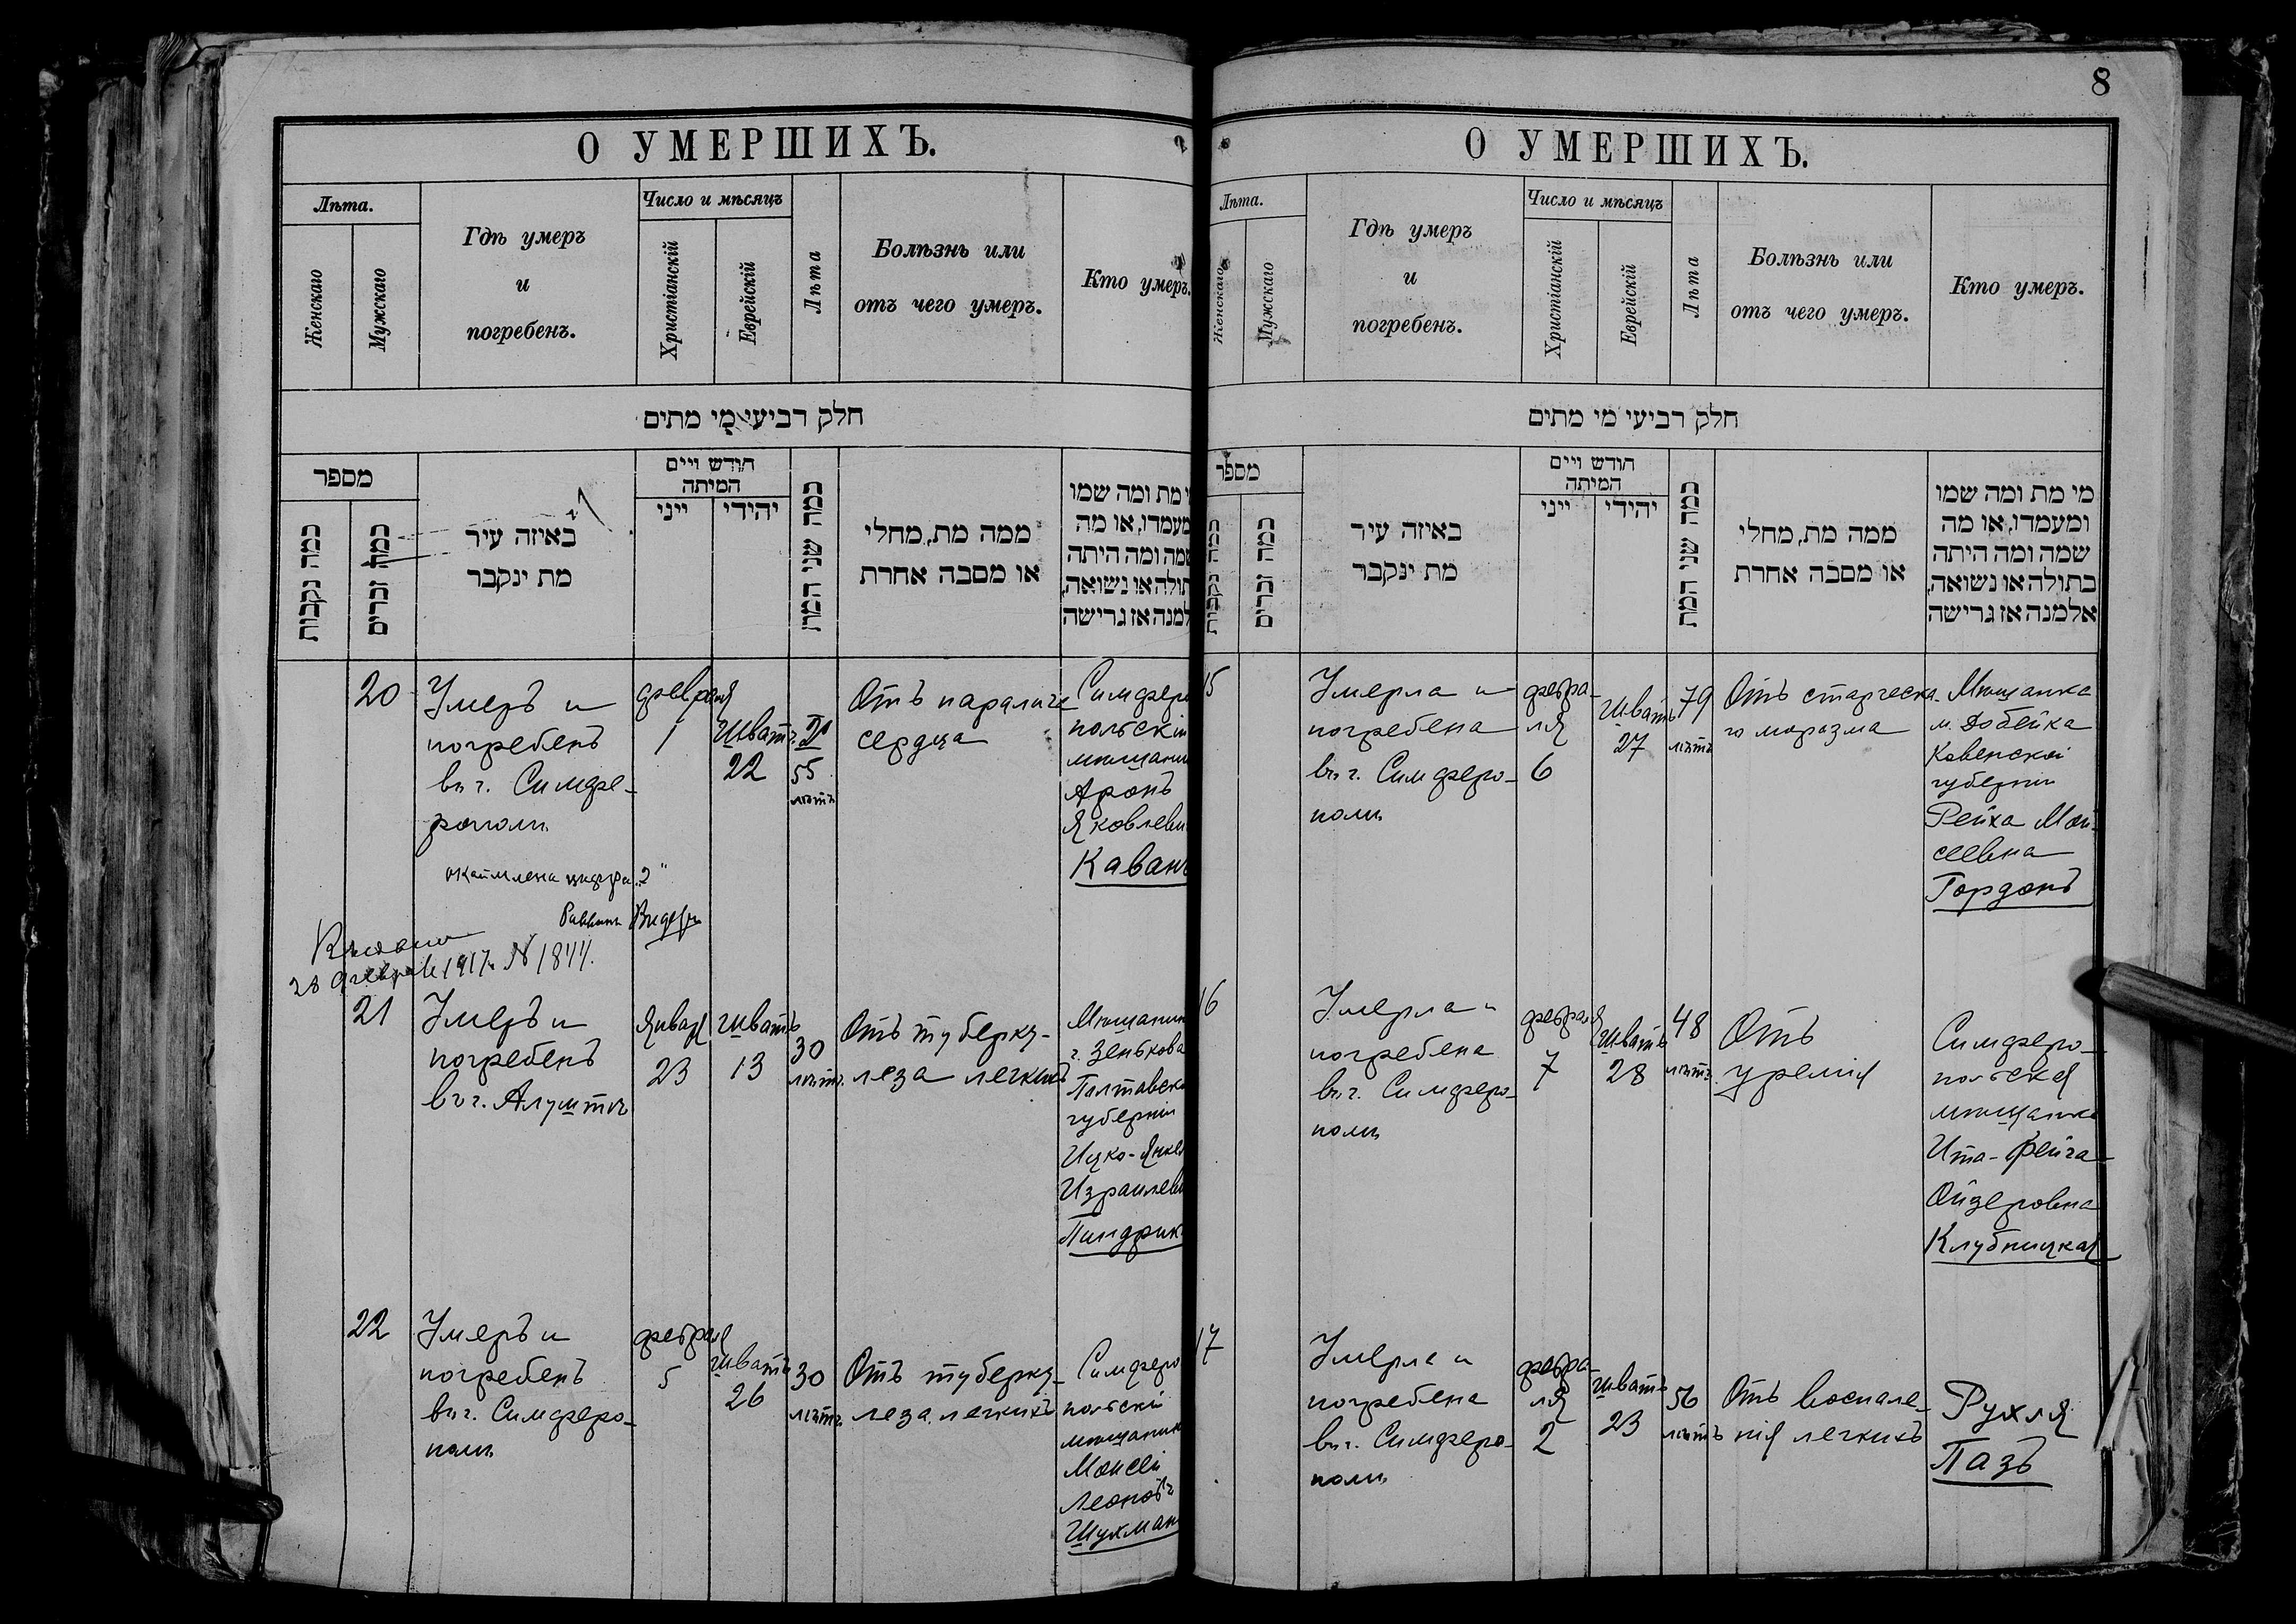 О УМЕРШИХЪ.
Лѣта.
Женскаго
Мужскаго
Гдѣ умеръ
и
погребенъ.
Число и мѣсяцъ
Христіанскій
Еврейскій
Лѣта
Болѣзнь или
отъ чего умеръ.
Кто умеръ.
חלק רביעי מי מתים
מספר
כמה נקבות
כמה זכרים
באיזה עיר
מת ינקבר
חודש ויים
המיתה
ייני
יהודי
כמה שני המת
ממה מת, מחלי
או מסבה אחרת
מי מת ומה שמו
ומעמדו, או מה
שמה ומה היתה
בתולה או נשואה,
אלמנה אז גרישה
20
Умеръ и
погребенъ
въ г. Симфе-
рополѣ
февраля
1
Шватъ
22
55
лѣтъ
Отъ паралича
сердца
Симферо
польскій
мѣщанин
Аронъ
Яковлеви
Каванъ
окаймлена цифра „2"
Раввинъ
28 февраля 1917 г. № 1844.
21
Умеръ и
погребенъ
въ г. Алуштѣ
Января
23
Шватъ
13
30
лѣтъ
Отъ туберку-
леза легкихъ
Мѣщанин
г. Зенькова
Полтавско
губерніи
Ицко-Янке
Израилеви
Пиндрик
22
Умеръ и
погребенъ
въ г. Симферо-
полѣ
февраля
5
Шватъ
26
30
лѣтъ
Отъ туберку-
леза легкихъ
Симферо
польскій
мѣщанин
Моисей
Леонов
Шухман
8
О УМЕРШИХЪ.
Лѣта.
Женскаго
Мужскаго
Гдѣ умеръ
и
погребенъ.
Число и мѣсяцъ
Христіанскій
Еврейскій
Лѣта
Болѣзнь или
отъ чего умеръ.
Кто умеръ.
חלק רביעי מי מתים
מספר
כמה נקבות
כמה זכרים
באיזה עיר
מת ינקבר
חודש ויים
המיתה
ייני
יהודי
כמה שני המת
ממה מת, מחלי
או מסבה אחרת
מי מת ומה שמו
ומעמדו, או מה
שמה ומה היתה
בתולה או נשואה,
אלמנה אז גרישה
15
Умерла и
погребена
въ г. Симферо-
полѣ
февра-
ля
6
Шватъ
27
79
лѣтъ
Отъ старческа-
го моразма
Мѣщанка
м. Добейка
Ковенской
губерніи
Рейха Мои-
сеевна
Гордонъ
16
Умерла и
погребена
въ г. Симферо-
полѣ
февраля
7
Шватъ
28
48
лѣтъ
Отъ
уреміи
Симферо-
польская
мѣщанка
Ита-Фейга
Ойзеровна
Клубницкая
17
Умерла и
погребена
въ г. Симферо-
полѣ
февра-
ля
2
Шватъ
23
56
лѣтъ
Отъ воспале-
нія легкихъ
Рухля
Пазъ